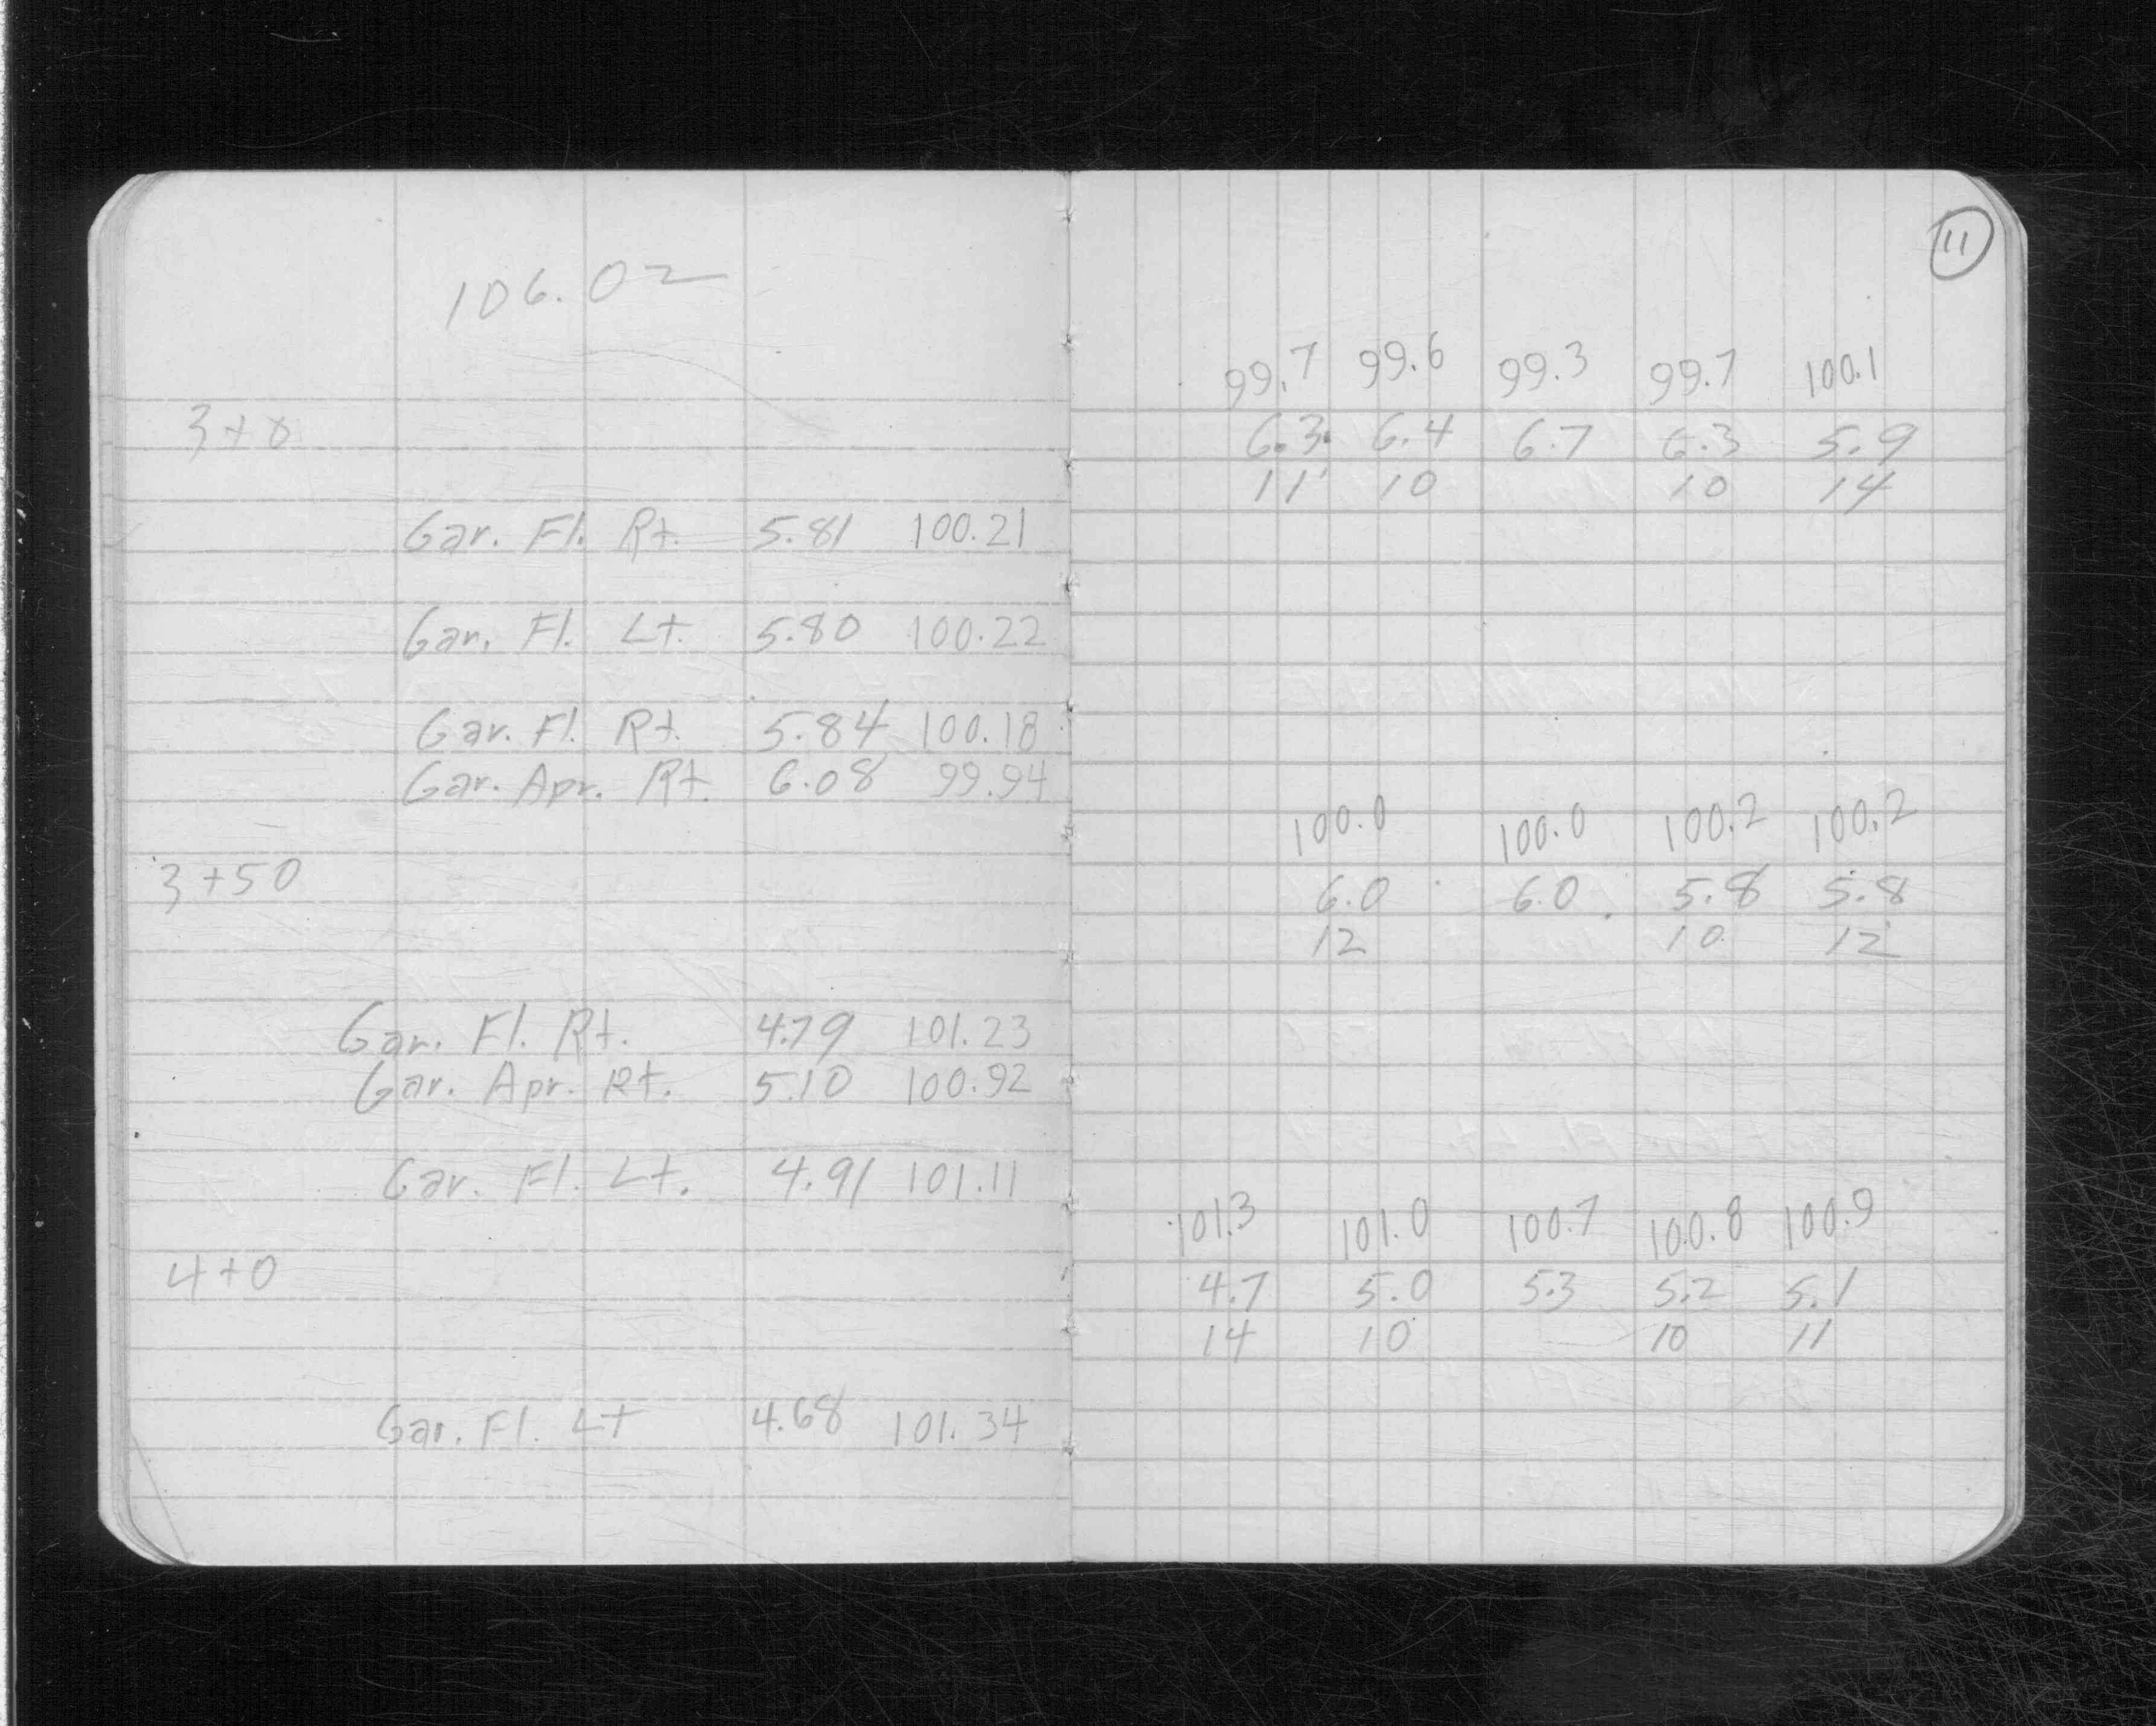 106.02
3+0
Gar. Fl. Rt. 5.81 100.21
Gar. Fl. Lt. 5.80 100.22
Gar. Fl. Rt. 5.84 100.18
Gar. Apr. Rt. 6.08 99.94
3+50
Gar. Fl. Rt. 4.79 101.23
Gar. Apr. Rt. 5.10 100.92
Gar. Fl. Lt. 4.91 101.11
4+0
Gar. Fl. Lt 4.68 101.34
11
99.7 99.6 99.3 99.7 100.1
6.3 6.4 6.7 6.3 5.9
11 10 10 14
100.0 100.0 100.2 100.2
6.0 6.0 5.8 5.8
12 10 12
101.3 101.0 100.7 100.8 100.9
4.7 5.0 5.3 5.2 5.1
14 10 10 11